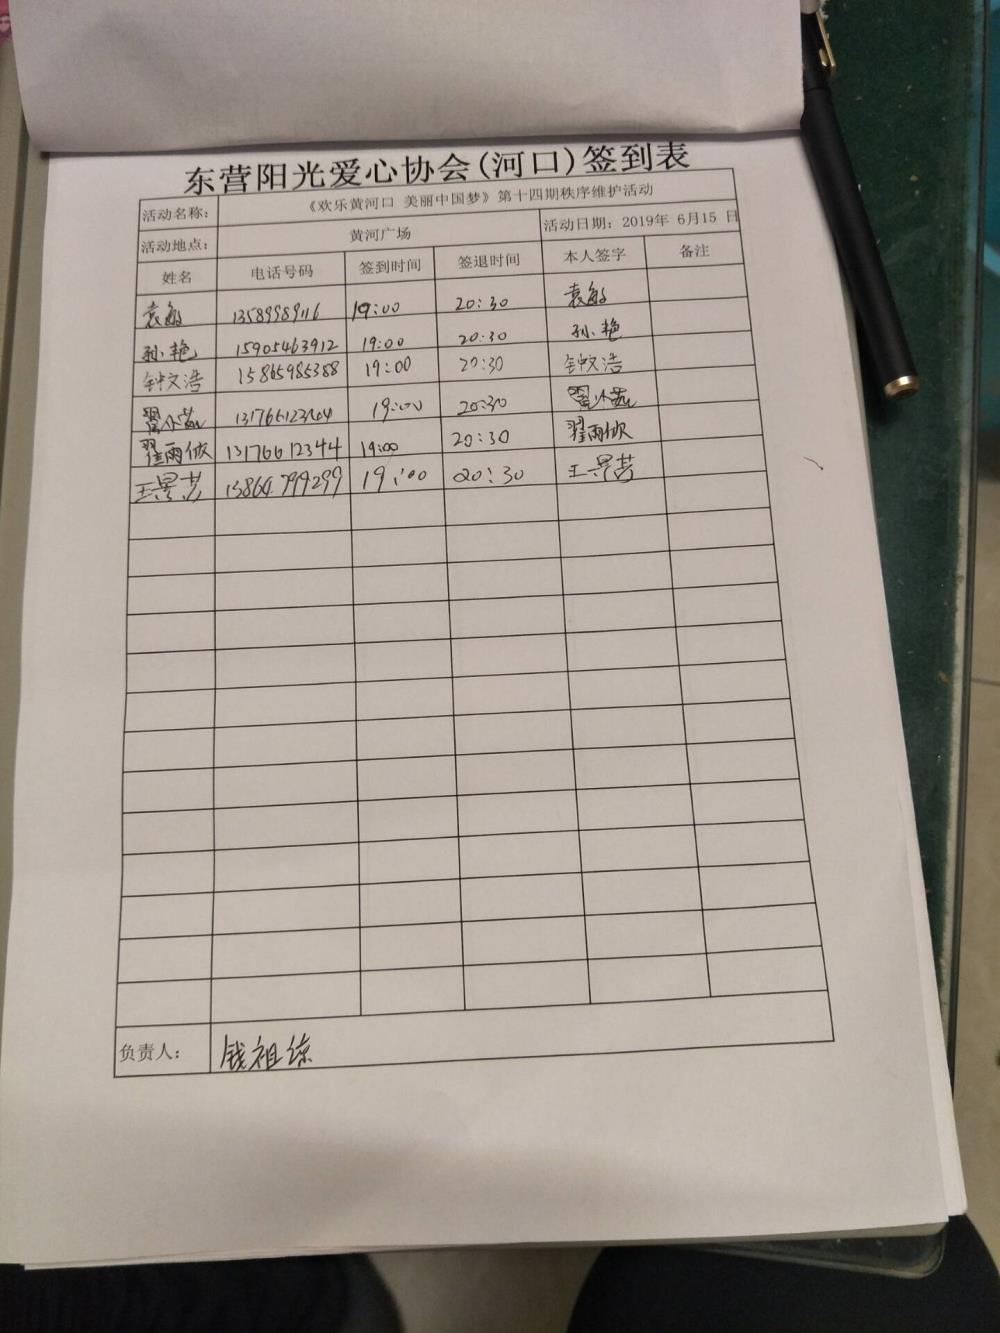 东营阳光爱心协会(河口)签到表
活动名称： 《欢乐黄河口 美丽中国梦》第十四期秩序维护活动
活动地点： 黄河广场 活动日期：2019年 6月15 日
姓名 电话号码 签到时间 签退时间 本人签字 备注
袁敏 19:00 20:30 袁敏
孙艳 15905463912 19:00 20:30 孙艳
钟文浩 15865985388 19:00 20:30 钟文浩
翟小茹 19:00 20:30 翟小茹
翟雨欣 13176612344 19:00 20:30 翟雨欣
王景芸 15864799299 19:00 20:30 王景芸
负责人： 钱祖综